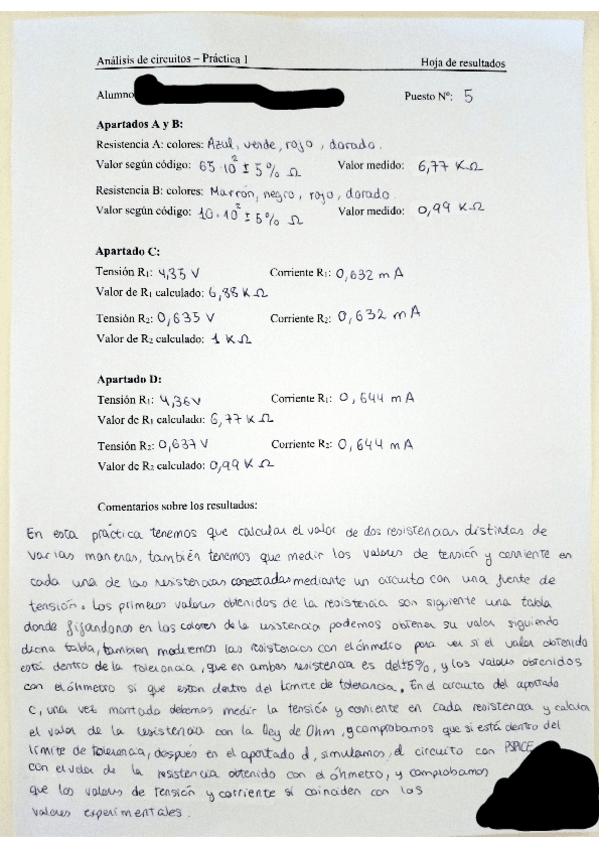 Análisis de circuitos – Práctica 1 Hoja de resultados
Alumno Puesto Nº: 5
Apartados A y B:
Resistencia A: colores: Azul, verde, rojo, dorado.
Valor según código: 65·10² ± 5% Ω Valor medido: 6,77 KΩ
Resistencia B: colores: Marrón, negro, rojo, dorado.
Valor según código: 10·10² ± 5% Ω Valor medido: 0,99 KΩ
Apartado C:
Tensión R₁: 4,35 V Corriente R₁: 0,632 mA
Valor de R₁ calculado: 6,88 KΩ
Tensión R₂: 0,635 V Corriente R₂: 0,632 mA
Valor de R₂ calculado: 1 KΩ
Apartado D:
Tensión R₁: 4,36V Corriente R₁: 0,644 mA
Valor de R₁ calculado: 6,77 KΩ
Tensión R₂: 0,637 V Corriente R₂: 0,644 mA
Valor de R₂ calculado: 0,99 KΩ
Comentarios sobre los resultados:
En esta práctica tenemos que calcular el valor de dos resistencias distintas de
varias maneras, también tenemos que medir los valores de tensión y corriente en
cada una de las resistencias conectadas mediante un circuito con una fuente de
tensión. Los primeros valores obtenidos de la resistencia son siguiente una tabla
donde fijandonos en los colores de la resistencia podemos obtener su valor siguiendo
dicha tabla, tambien mediremos las resistencias con el óhmetro para ver si el valor obtenido
está dentro de la tolerancia, que en ambas resistencia es del ±5%, y los valores obtenidos
con el óhmetro si que estan dentro del límite de tolerancia. En el circuito del apartado
C, una vez montado debemos medir la tensión y corriente en cada resistencia y calcular
el valor de la resistencia con la ley de Ohm, y comprobamos que si está dentro del
límite de tolerancia, después en el apartado d, simulamos el circuito con PSPICE
con el valor de la resistencia obtenido con el óhmetro, y comprobamos
que los valores de tensión y corriente sí coinciden con los
valores experimentales.